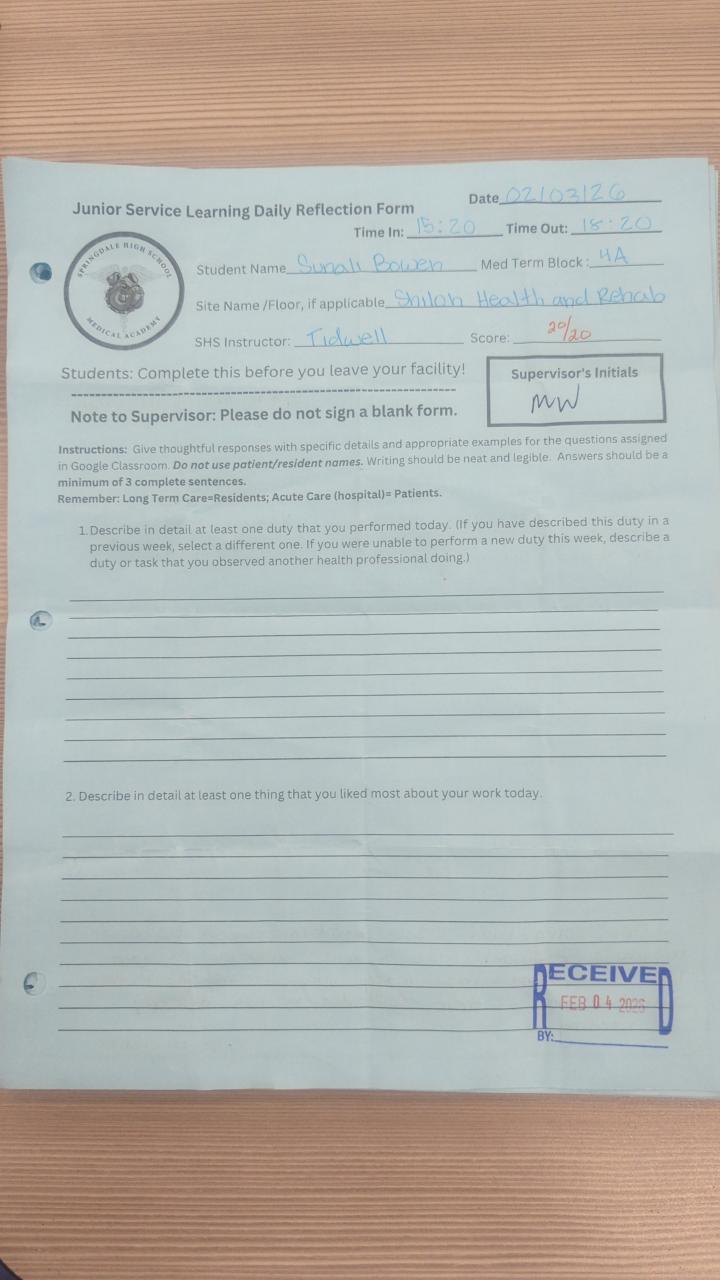 Date 02/03/26
Junior Service Learning Daily Reflection Form
Time In: 15:20 Time Out: 18:20
SPRINGDALE HIGH SCHOOL
MEDICAL ACADEMY
Student Name Sunali Bowen Med Term Block: 4A
Site Name /Floor, if applicable Shiloh Health and Rehab
SHS Instructor: Tidwell Score: 20/20
Students: Complete this before you leave your facility!
Supervisor's Initials
MW
Note to Supervisor: Please do not sign a blank form.
Instructions: Give thoughtful responses with specific details and appropriate examples for the questions assigned
in Google Classroom. Do not use patient/resident names. Writing should be neat and legible. Answers should be a
minimum of 3 complete sentences.
Remember: Long Term Care=Residents; Acute Care (hospital)= Patients.
1. Describe in detail at least one duty that you performed today. (If you have described this duty in a
previous week, select a different one. If you were unable to perform a new duty this week, describe a
duty or task that you observed another health professional doing.)
2. Describe in detail at least one thing that you liked most about your work today.
RECEIVED
FEB 04 2026
BY: